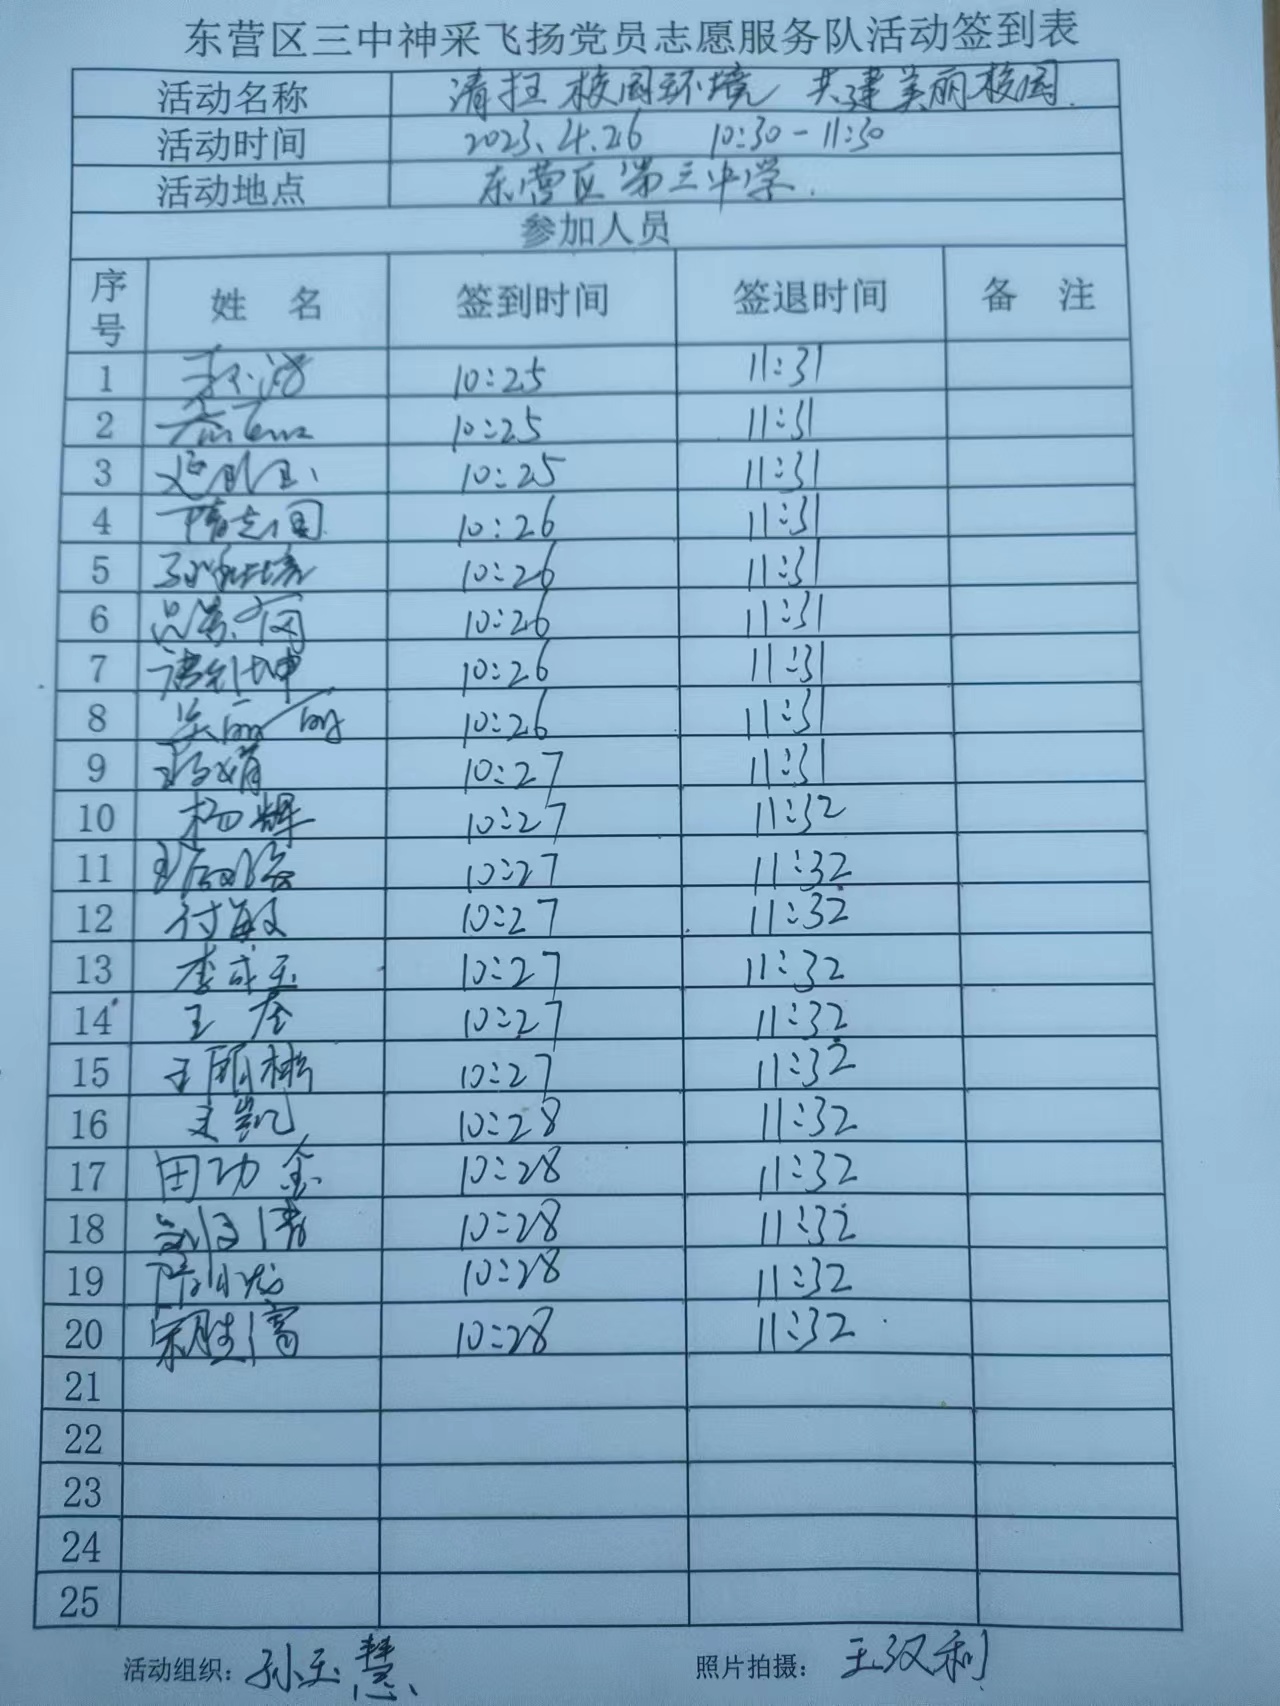 东营区三中神采飞扬党员志愿服务队活动签到表
活动名称 清扫校园环境 共建美丽校园.
活动时间 2023.4.26 10:30-11:30
活动地点 东营区第三中学.
参加人员
序号 姓名 签到时间 签退时间 备注
1 10:25 11:31
2 10:25 11:31
3 10:25 11:31
4 隋志国 10:26 11:31
5 10:26 11:31
6 10:26 11:31
7 10:26 11:31
8 10:26 11:31
9 10:27 11:31
10 杨辉 10:27 11:32
11 10:27 11:32
12 付敏 10:27 11:32
13 李成玉 10:27 11:32
14 10:27 11:32
15 10:27 11:32
16 王凯 10:28 11:32
17 田功金 10:28 11:32
18 10:28 11:32
19 10:28 11:32
20 宋胜富 10:28 11:32
21
22
23
24
25
活动组织：孙玉慧 照片拍摄：王汉利